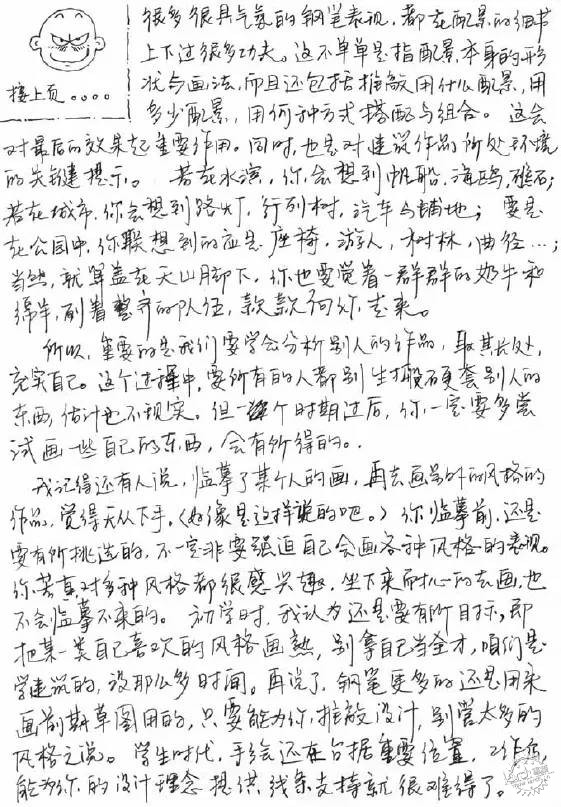 很多很具气氛的钢笔表现，都在配景的细节
上下过很多功夫。这不单单是指配景本身的形
状与画法，而且还包括推敲用什么配景，用
多少配景，用何种方式搭配与组合。这会
接上页。。。。
对最后的效果起重要作用。同时，也是对建筑作品所处环境
的关键提示。若在水滨，你会想到帆船，海鸥，礁石；
若在城市，你会想到路灯，行列树，汽车与铺地；要是
在公园中，你联想到的应是座椅，游人，树林，曲径…；
当然，就算盖在天山脚下，你也要觉着一群群的奶牛和
绵羊，削着整齐的队伍，款款向你走来。
所以，重要的是我们要学会分析别人的作品，取其长处，
充实自己。这个过程中，要所有的人都别生搬硬套别人的
东西，估计也不现实。但一个时期过后，你一定要多尝
试画一些自己的东西，会有所得的。
我记得还有人说，临摹了某个人的画，再去画另外的风格的
作品，觉得无从下手。（好像是这样说的吧。）你临摹前，还是
要有所挑选的，不一定非要强迫自己会画各种风格的表现。
你若真对多种风格都很感兴趣，坐下来耐心的去画，也
不会临摹不来的。初学时，我认为还是要有所目标，即
把某一类自己喜欢的风格画熟，别拿自己当全才，咱们是
学建筑的，没那么多时间。再说了，钢笔更多的还是用来
画前期草图用的，只要能为你推敲设计，别管太多的
风格之说。学生时代，手绘还在占据重要位置，工作后，
能为你的设计理念提供线条支持就很难得了。